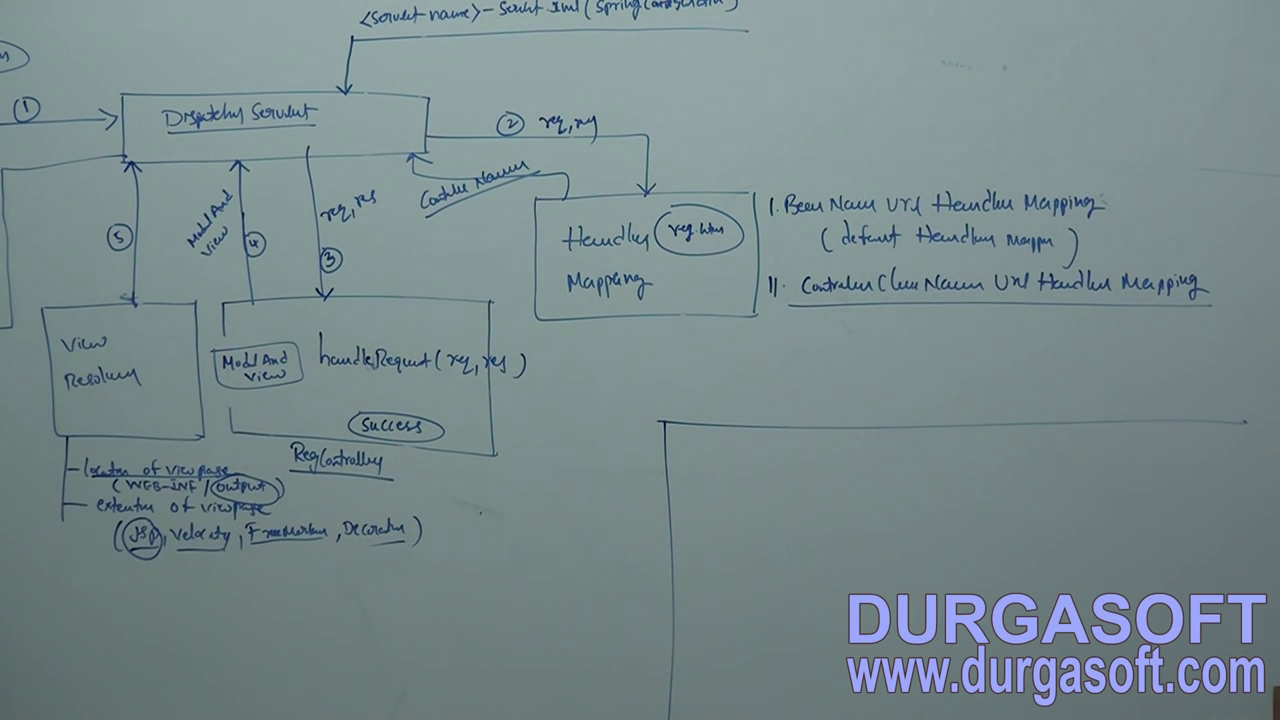 <servlet name>-
①
Dispatcher Servlet
② req, res
Controller Name
Handler
Mapping
I. Bean Name Url Handler Mapping
(default Handler Mapper)
II. Controller Class Name Url Handler Mapping
req, res
③
ModelAnd
View
④
⑤
View
Resolver
ModelAnd
View
handleRequest(req, res)
Success
RegController
location of viewpage
(WEB-INF/output)
extention of viewpage
(JSP, Velocity, FreeMarker, Decorator)
DURGASOFT
www.durgasoft.com